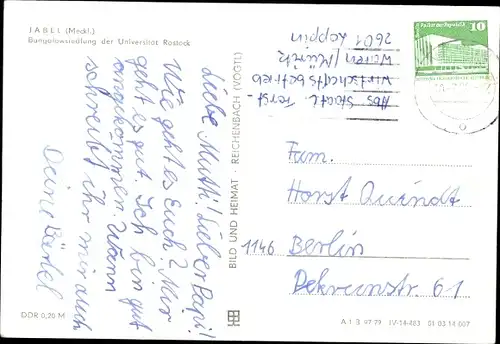 JABEL (Meckl.)
Bungalowsiedlung der Universität Rostock
Liebe Mutti! Lieber Papi!
Wie geht es Euch? Mir
geht es gut. Ich bin gut
angekommen. Wann
schreibt ihr mir auch
Deine Bärbel
DDR 0,20 M
BILD UND HEIMAT · REICHENBACH (VOGTL)
Abs. Staatl. Forst-
wirtschaftsbetrieb
Waren/Müritz
2601
10
Fam.
Horst Quindt
1146 Berlin
61
A 1 B 97/79 IV-14-483 01 03 14 007